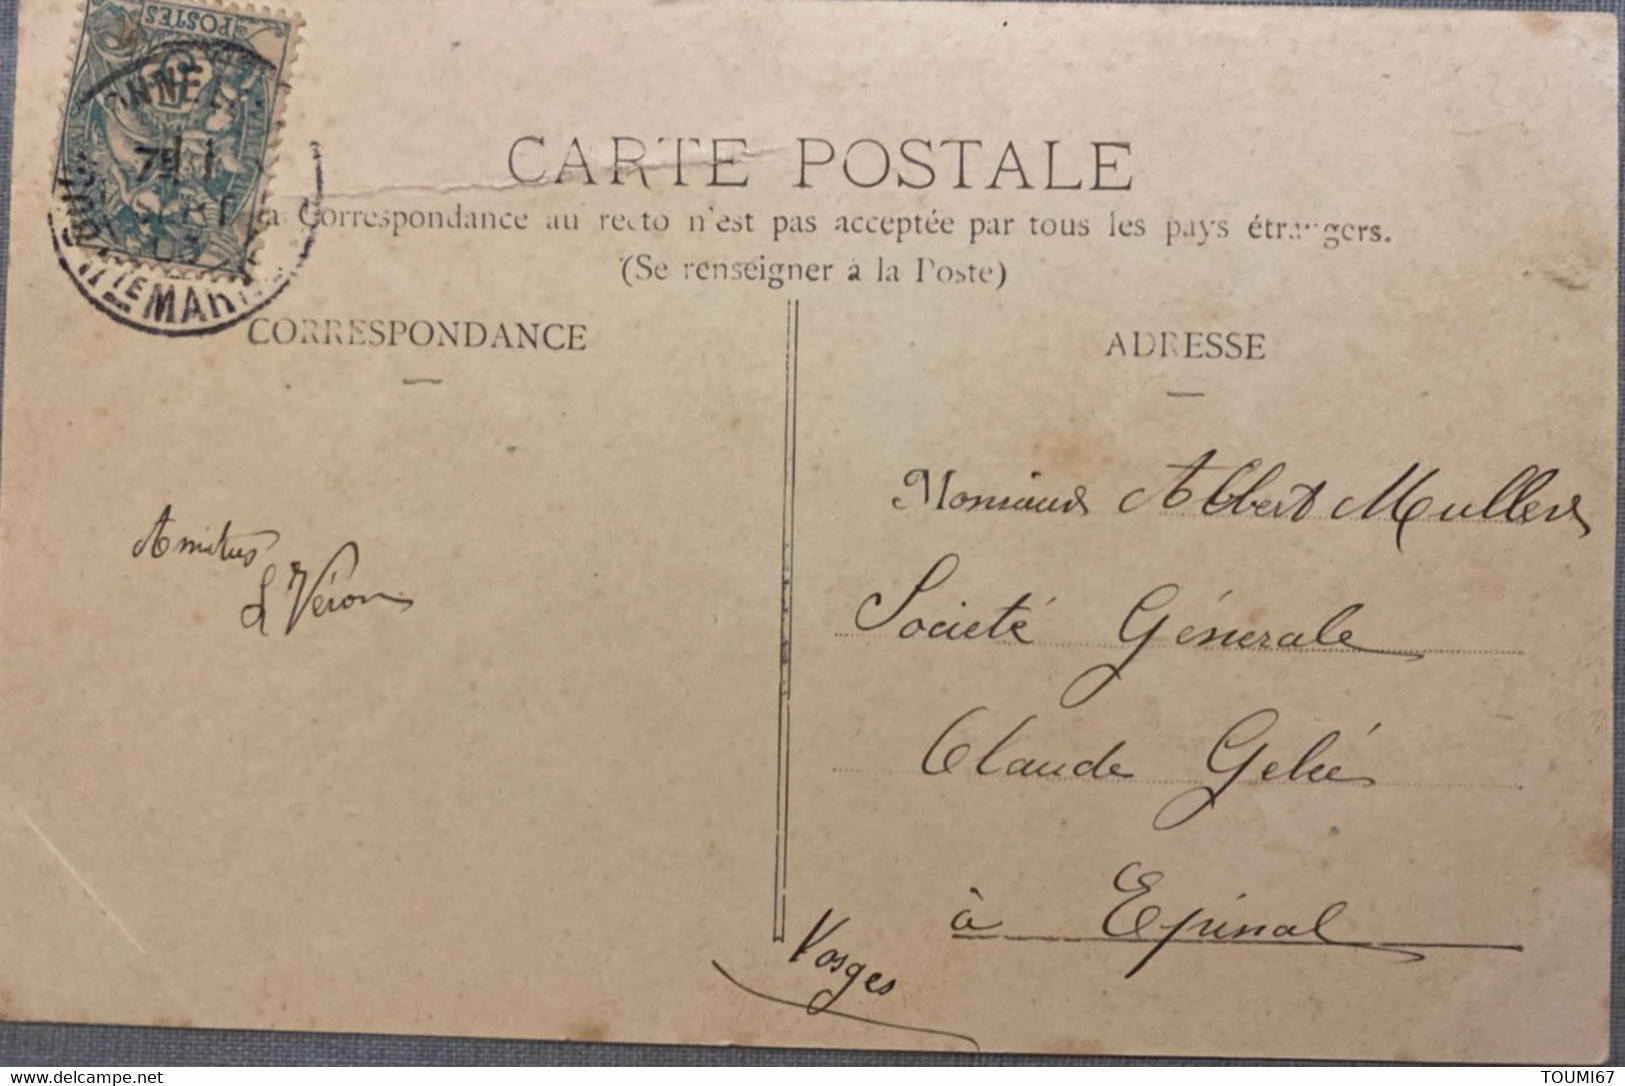 POSTES
CARTE POSTALE
La Correspondance au recto n'est pas acceptée par tous les pays étrangers.
(Se renseigner à la Poste)
CORRESPONDANCE
ADRESSE
Amitus
L Véron
Monsieur Albert Muller
Société Générale
Claude Gelée
à Epinal
Vosges
https://www.delcampe.net
TOUMI67